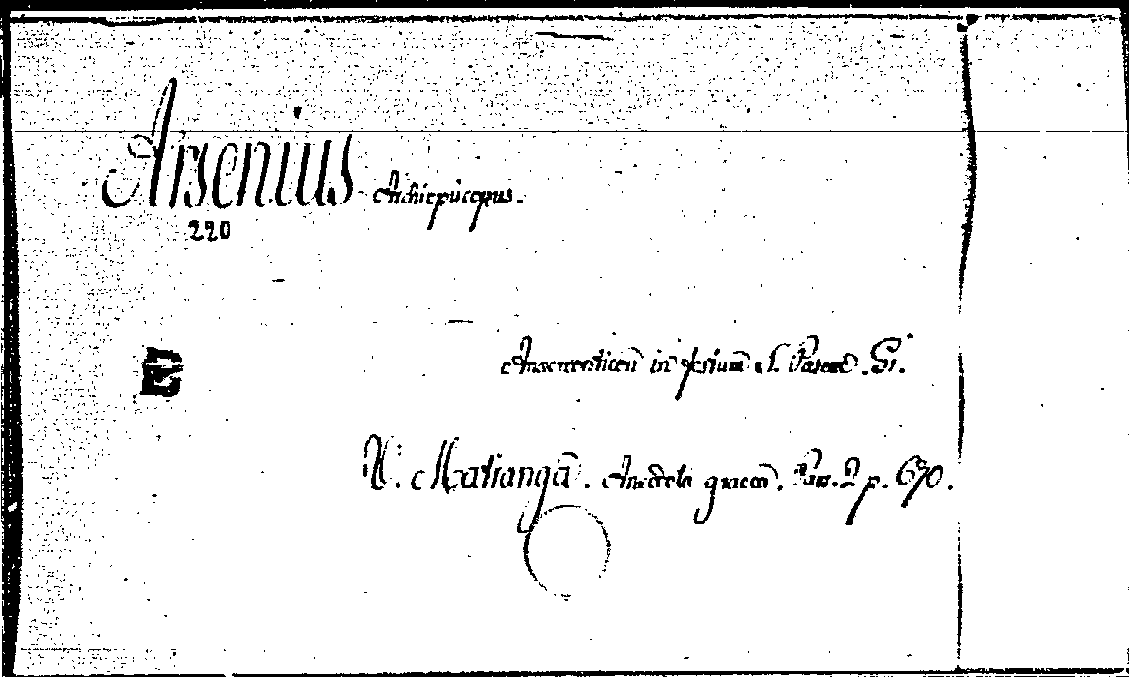 Arsenius Archiepiscopus.
220
E
Anacreonticum in festum S. Pasch. Gr.
V. Matranga. Anecdota graeca. Par. 2 p. 670.